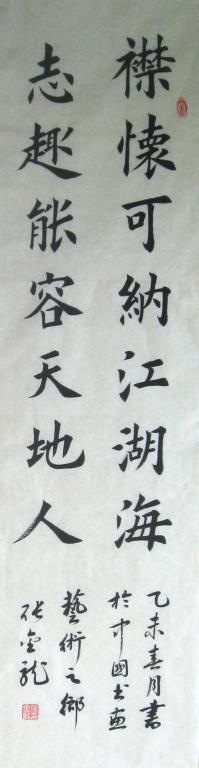 襟懷可納江湖海
志趣能容天地人
乙未春月書
於中國書畫
藝術之鄉
張金龍